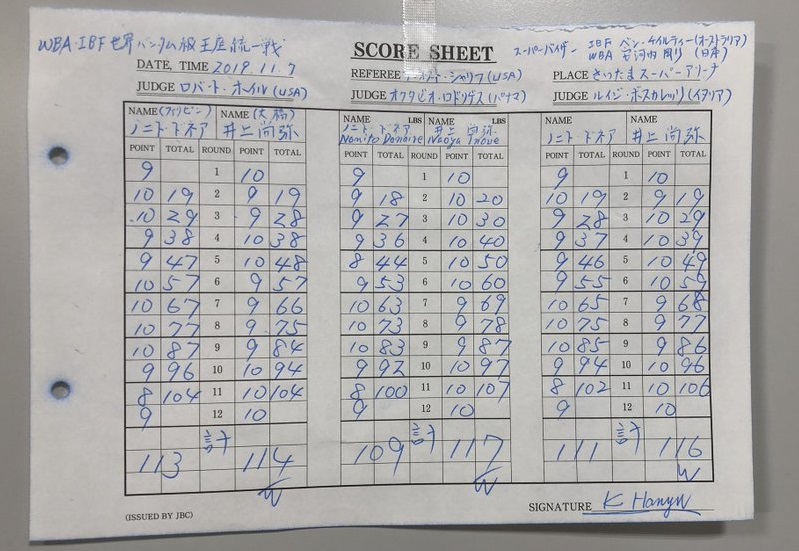 WBA・IBF世界バンタム級王座統一戦
SCORE SHEET
スーパーバイザー IBF ベン・ケイルティー(オーストラリア)
WBA 安河内 剛(日本)
DATE, TIME 2019.11.7
REFEREE シャリフ(USA)
PLACE さいたまスーパーアリーナ
JUDGE ロバート・ホイル(USA)
JUDGE オクタビオ・ロドリゲス(パナマ)
JUDGE ルイジ・ボスカレッリ(イタリア)
NAME (フィリピン) NAME (大橋) NAME LBS NAME LBS NAME NAME
ノニト・ドネア 井上尚弥 ノニト・ドネア 井上 尚弥 ノニト・ドネア 井上 尚弥
Nonito Donaire Naoya Inoue
POINT TOTAL ROUND POINT TOTAL POINT TOTAL ROUND POINT TOTAL POINT TOTAL ROUND POINT TOTAL
9 1 10 9 1 10 9 1 10
10 19 2 9 19 9 18 2 10 20 10 19 2 9 19
10 29 3 9 28 9 27 3 10 30 9 28 3 10 29
9 38 4 10 38 9 36 4 10 40 9 37 4 10 39
9 47 5 10 48 8 44 5 10 50 9 46 5 10 49
10 57 6 9 57 9 53 6 10 60 9 55 6 10 59
10 67 7 9 66 10 63 7 9 69 10 65 7 9 68
10 77 8 9 75 10 73 8 9 78 10 75 8 9 77
10 87 9 9 84 10 83 9 9 87 10 85 9 9 86
9 96 10 10 94 9 92 10 10 97 9 94 10 10 96
8 104 11 10 104 8 100 11 10 107 8 102 11 10 106
9 12 10 9 12 10 9 12 10
計 計 計
113 114 109 117 111 116
W W W
(ISSUED BY JBC)
SIGNATURE K Hanyu